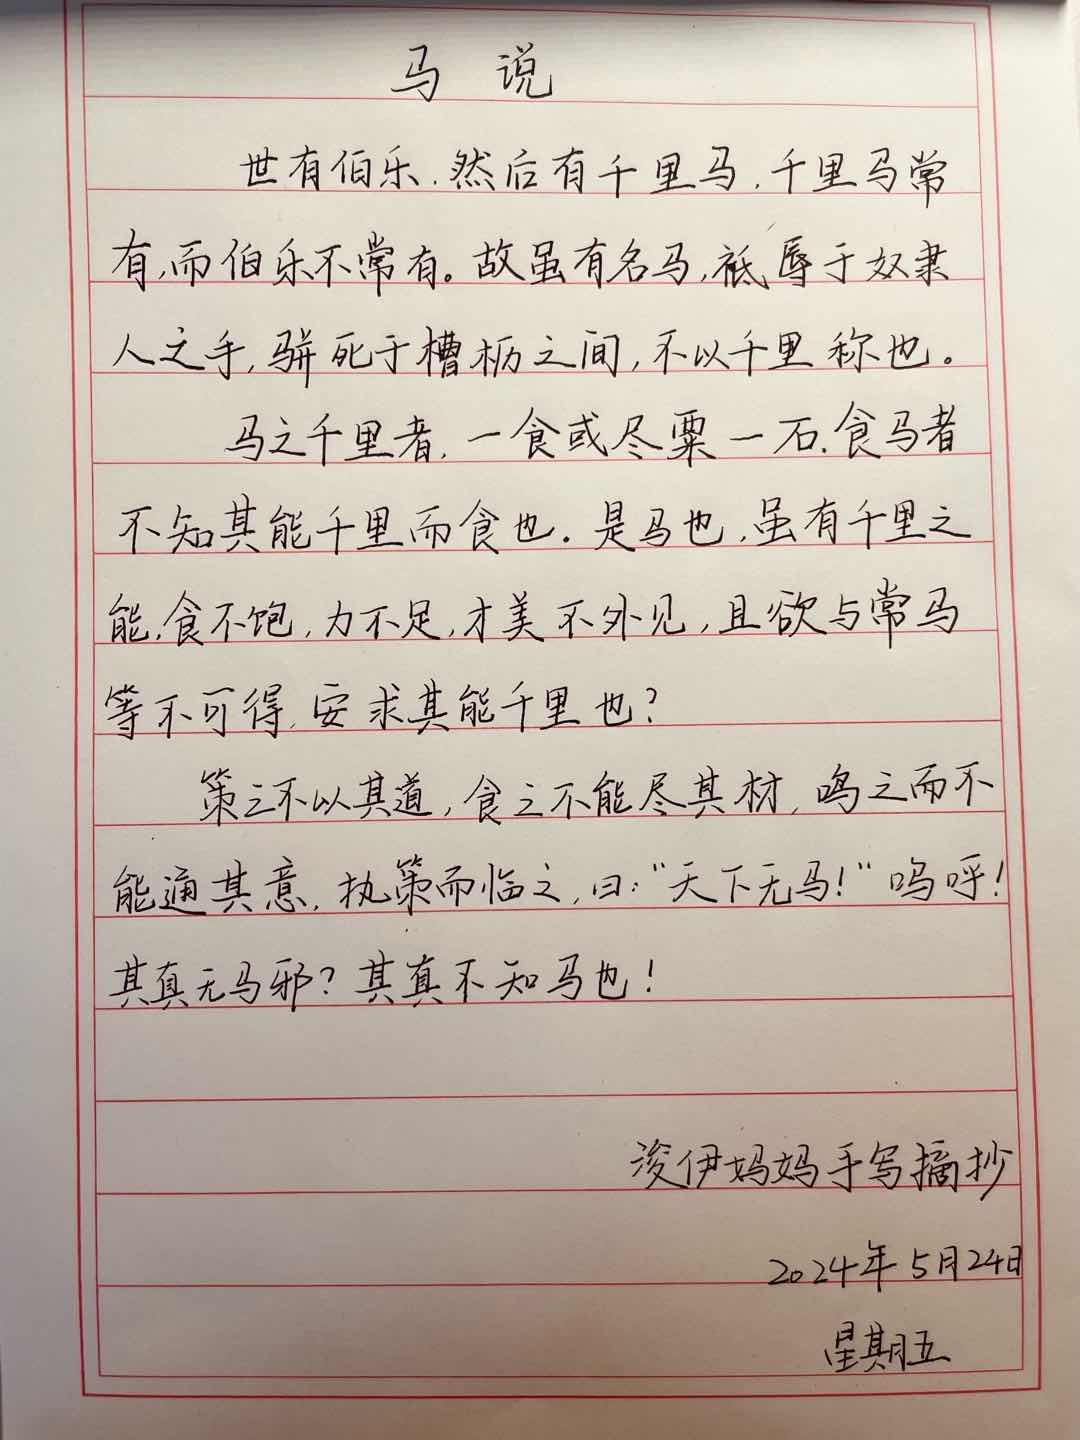 马 说
世有伯乐，然后有千里马，千里马常
有，而伯乐不常有。故虽有名马，祗辱于奴隶
人之手，骈死于槽枥之间，不以千里称也。
马之千里者，一食或尽粟一石，食马者
不知其能千里而食也。是马也，虽有千里之
能，食不饱，力不足，才美不外见，且欲与常马
等不可得，安求其能千里也？
策之不以其道，食之不能尽其材，鸣之而不
能通其意，执策而临之，曰：“天下无马！”呜呼！
其真无马邪？其真不知马也！
浚伊妈妈手写摘抄
2024年5月24日
星期五